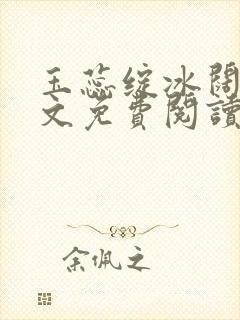 玉蕊绽冰阔
文免費閱讀
余佩之